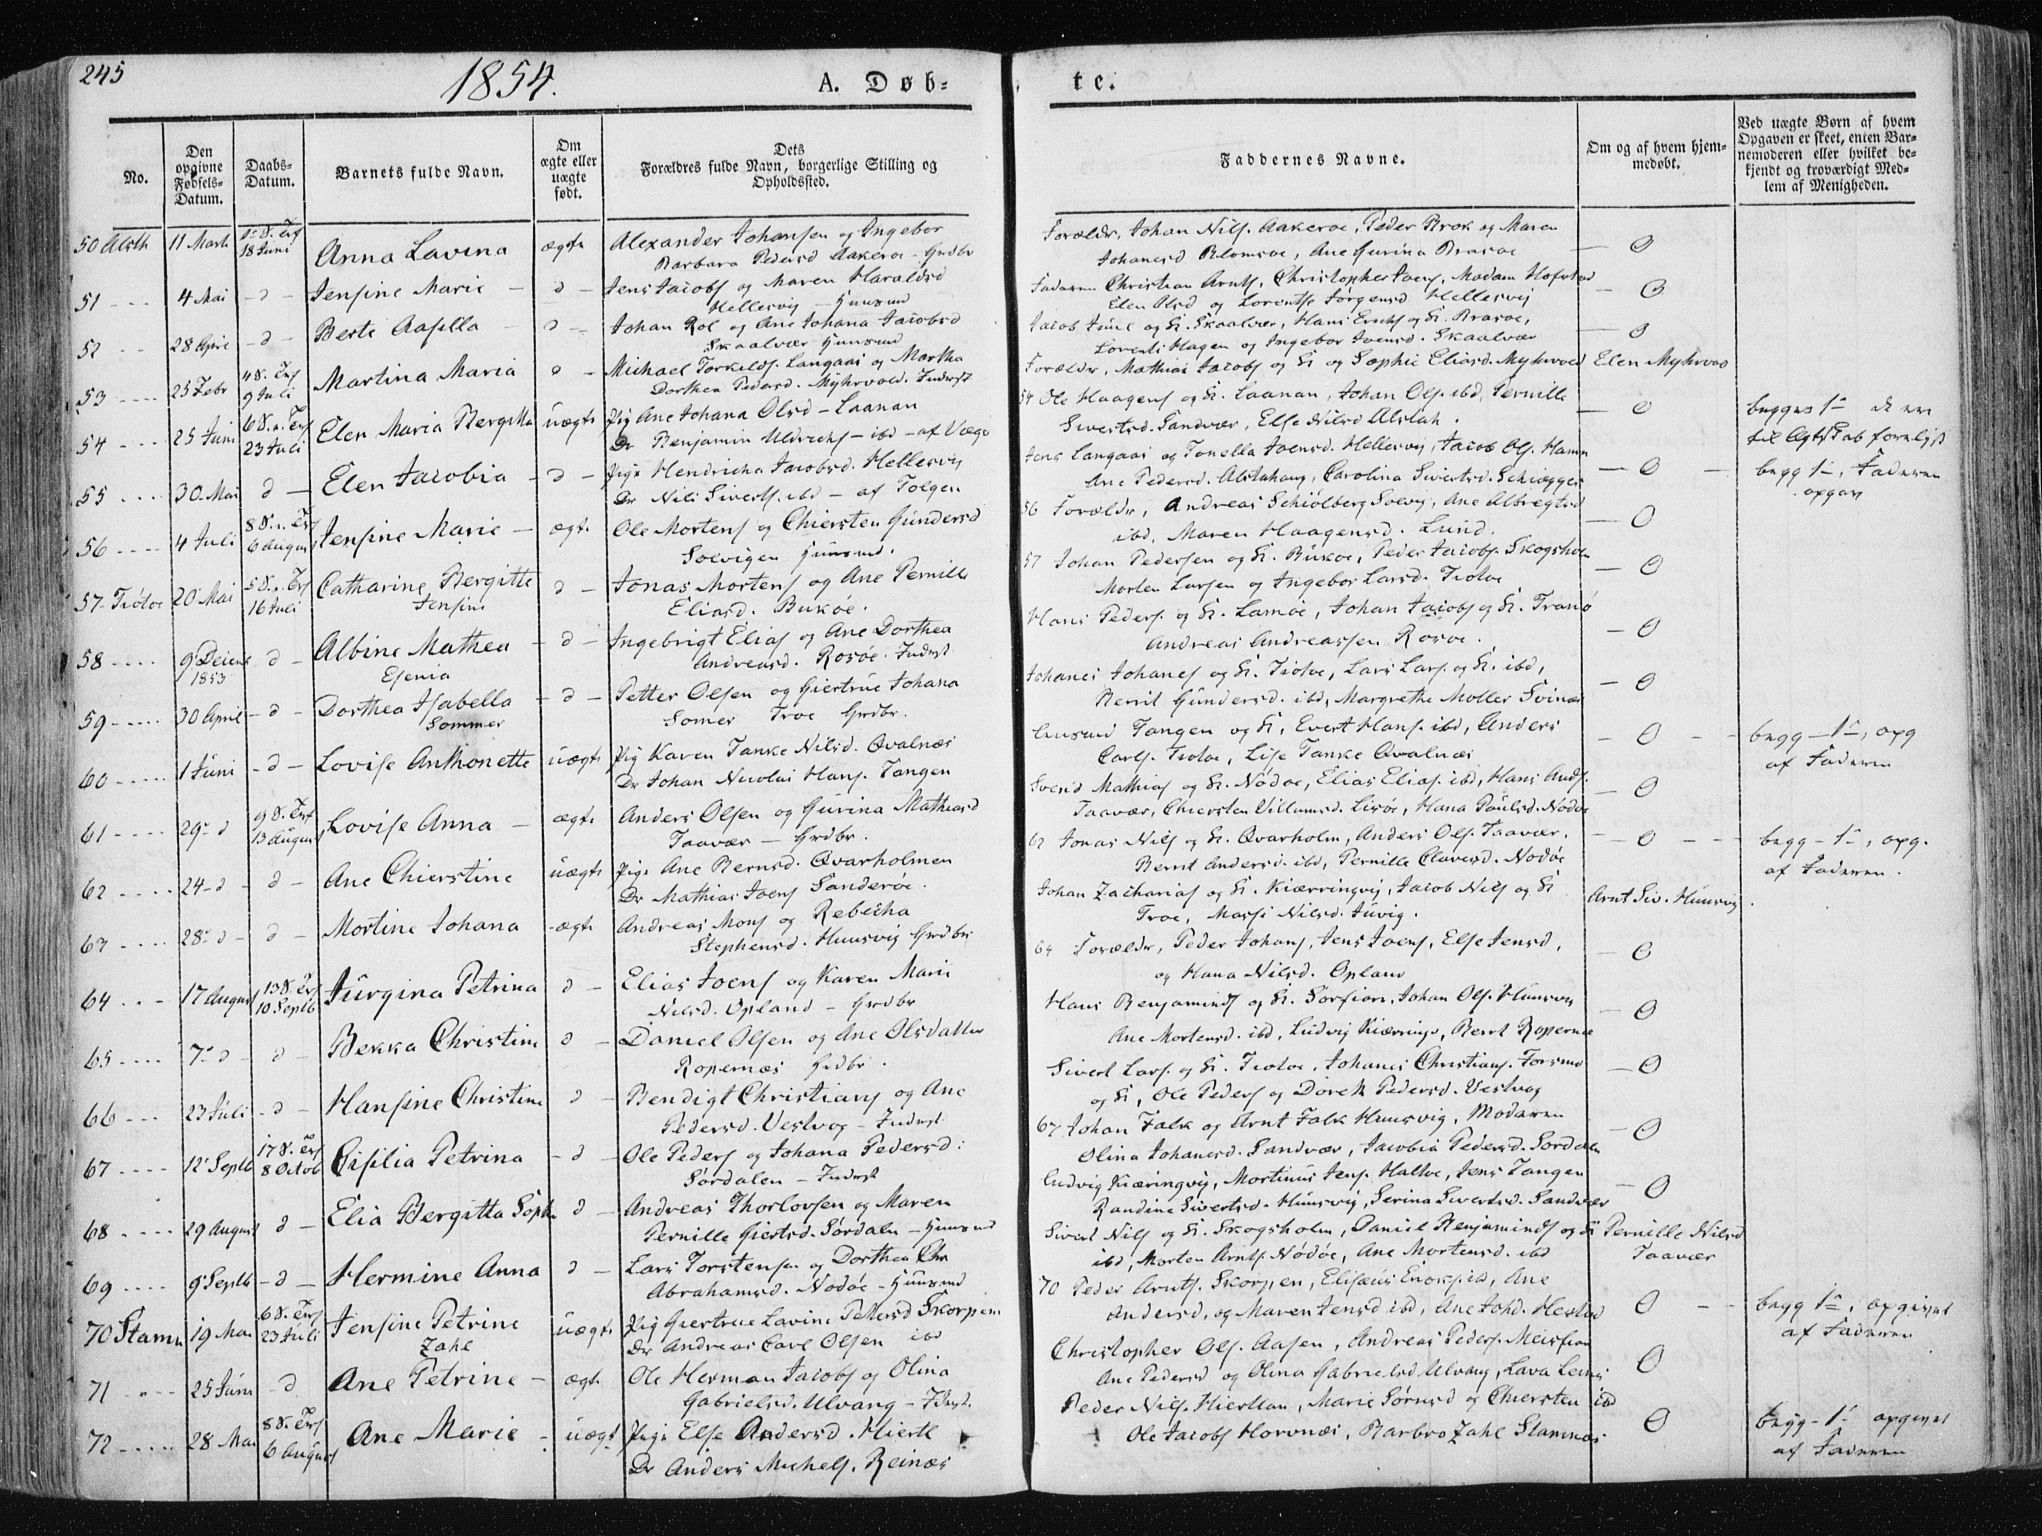 245
1854.
A. Døb-
te.
No.
Den opgivne Fødsels-Datum.
Daabs-Datum.
Barnets fulde Navn.
Om ægte eller uægte født.
Dets Forældres fulde Navn, borgerlige Stilling og Opholdssted.
Faddernes Navne.
Om og af hvem hjemmedøbt.
Ved uægte Børn af hvem Opgaven er skeet, enten Barnemoderen eller hvilket bekjendt og troværdigt Medlem af Menigheden.
50 Alsth 11 Marts 18 Juni Anna Lavina ægte Alexander Johansen og Ingebor
Barbara Pedersd Aakeroe - Grdbr
Forældr, Johan Nils. Aakeroe, Peder Brok og Maren
Johanesd Blomsoe, Ane Gurina Brasoe - 0
51 4 Mai - d - Jensine Marie - d - Jens Jacobs og Maren Haraldsd
Hellesvig - Huusmd
Faderen Christian Arnts, Christopher Joens, Madam Hofstad
Elen Olsd og Lorentse Jørgensd Hellesvig - 0
52 28 April - d - Berte Aasella - d - Johan Rol og Ane Johana Jacobsd
Skaalvær Huusmd
Jacob Juul og H. Skaalvær, Hans Erichs og H. Brasoe,
Lorents Hagen og Ingebor Joensd. Skaalvær - 0
53 25 Febr 9 Juli Martina Maria d - Michael Torkelds. Langaas og Martha
Dorthea Pedersd. Myhrvold. Inderst
Forældr, Mathias Jacobs og H og Sophie Eliasd. Myhrvold Elen Myhrvold
54 25 Juni 23 Juli Elen Maria Bergitta uægte Pig Ane Johana Olsd - Laanan
Dr Benjamin Uldrichs - ibd - af Væge
54 Ole Haagens og H. Laanan, Johan Ols. ibd, Pernille
Sivertsd. Sandvær, Else Nilsd Alstah. - 0
begges 1-
55 30 Mai d - Elen Jacobia - d - Pige Hendricha Jacobsd. Hellesvig
Dr Nils Siverts. ibd - af Tolgen
Jens Langaas og Tonella Joensd. Hellesvig, Jacob Ols. Hamn
Ane Pedersd. Alstahaug, Carolina Sivertsd. - 0
begg 1-, Faderen
opgav
56 4 Juli 6 August Jensine Marie - ægte Ole Mortens og Chiersten Gundersd
Solvigen Huusmd.
56 Forældr, Andreas Schiølberg Solvig, Ane Albregtsd
ibd, Maren Haagensd. Lund. - 0
57 Tiøtøe 20 Mai 16 Juli Catharine Bergitte
Jensine d - Jonas Mortens og Ane Pernille
Eliasd. Bukøe.
57 Johan Pedersen og H. Bukøe, Peder Jacobs. Skogsholm
Morten Larsen og Ingebor Larsd. Tiøtøe - 0
58 9 Decem 1853 - d - Albine Mathea
Esenia - d - Ingebrigt Elias og Ane Dorthea
Andreasd. Rosøe. Inderst
Hans Peders og H. Lamøe, Johan Jacobs og H. Tranø
Andreas Andreassen Rosøe. - 0
59 30 April - d - Dorthea Isabella
Sommer - d - Petter Olsen og Giertrue Johana
Somer Troe Grdbr.
Johanes Johanes og H. Tiøtøe, Lars Lars. og H. ibd,
Berit Gundersd. ibd, Margrethe Moller Svinæs - 0
60 1 Juni - d - Lovise Anthonette uægte Pig Karen Tanke Nilsd. Qvalnæs
Dr Johan Nicolai Hans. Tangen
Tangen og H, Evert Hans. ibd, Anders
Carls. Tiøtøe, Lise Tanke Qvalnæs - 0
begg - 1-, opg
af Faderen
61 29- d 13 August Lovise Anna - ægte Anders Olsen og Gurina Mathiasd
Taavær - Grdbr.
Svend Mathias og H. Nødøe, Elias Elias. ibd, Hans Ands.
Taavær, Chiersten Villumsd. Lisøe, Hana Paulsd. Nodøe - 0
62 24 - d - d - Ane Chierstine uægte Pige Ane Berntsd. Qvarholmen
Dr Mathias Joens Sanderøe.
62 Jonas Nils og H. Qvarholm, Anders Ols. Taavær,
Bernt Andersd. ibd, Pernille Clavesd. Nodøe - 0
begg - 1-, opg.
af Faderen.
63 28- d - d - Mortine Johana - ægte Andreas Mons og Rebecha
Stephensd. Huusvig Grdbr
Johan Zacharias og H. Kiærringvig, Jacob Nils og H
Troe, Massi Nilsd. Juvig. Arnt Siv. Huusvig.
64 17 August 10 Septb Jurgina Petrina d - Elias Joens og Karen Marie
Nilsd. Opland - Grdbr
64 Forældr, Peder Johans, Jens Joens, Else Jensd,
og Hana Nilsd. Opland - 0
65 7- d - d - Bekka Christine d - Daniel Olsen og Ane Olsdatter
Ropernæs Grdbr.
Hans Benjamins og H. Sørfion, Johan Ols. Huusvig
Ane Mortensd. ibd, Ludvig Kiærringv, Bernt Ropernæs - 0
66 23 Juli - d - Hansine Christine d - Bendigt Christians og Ane
Pedersd. Vestvog - Inderst
Sivert Lars og H. Tiotøe, Johanes Christians. Forsmd
og H, Ole Peders og Doreth Pedersd. Vestvog - 0
67 12 Septb 8 Octob Cisilia Petrina - d - Ole Peders og Johana Pedersd:
Sørdalen - Inderst
67 Johan Falk og Arnt Falk Huusvig, Moderen
Olina Johanesd. Sandvær, Jacobia Pedersd. Sørdalen - 0
68 29 August d - Elia Bergitta Sophi d - Andreas Thorlovsen og Maren
Pernille Giertsd. Sørdaln - Huusmd
Ludvig Kiæringvig, Mortinus Jens. Haltøe, Jens Tangen
Randine Sivertsd. Huusvig, Serina Sivertsd. Sandvær - 0
69 9 Septb - d - Hermine Anna d - Lars Torstensen og Dorthea Chr
Abrahamsd. Nodøe - Huusmd
Sivert Nils og H. Skogsholm, Daniel Benjamins og H Pernille Nilsd
ibd, Morten Arnts Nødøe, Ane Mortensd. ibd Taavær
70 Stamn 19 Mai 23 Juli Jensine Petrine
Zahl uægte Pig Giertrue Lavine Pettersd Skorpen
Dr Andreas Carl Olsen ibd
70 Peder Arnts. Skorpen, Elisæus ibd, Ane
Andersd, og Maren Jensd ibd, Ane Johd. Hestad 0
begg 1-, opgivet
af Faderen
71 25 Juni - d Ane Petrine - ægte Ole Herman Jacobs og Olina
Gabrielsd. Ulvang - Indrst.
Christopher Ols. Aasen, Andreas Peders. Meisfion
Ane Pedersd og Olina Gabrielsd Ulvang, Lava 0
72 28 Mai 6 August Ane Marie - uægt Pige Else Andersd. Hiertl
Dr Anders Michels. Reinæs
Peder Nils. Hiertlan, Marie Sørensd og Chiersten ibd
Ole Jacobs Horvnæs, Barbro Zahl Stamnæs 0
begg - 1- opgivet
af Faderen